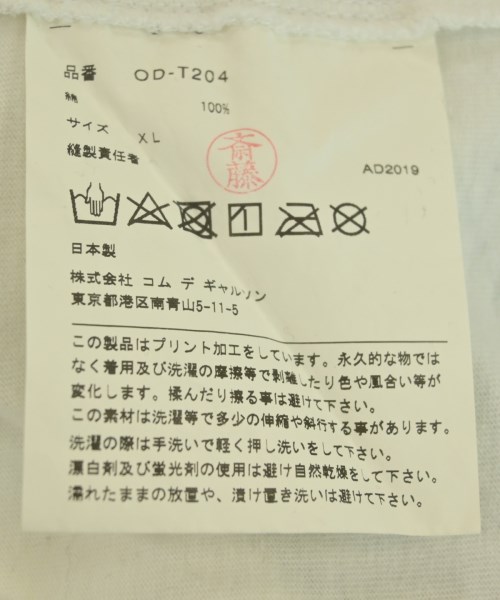 品番 OD-T204
綿 100%
サイズ XL
縫製責任者 斎藤
AD2019
日本製
株式会社 コム デ ギャルソン
東京都港区南青山5-11-5
この製品はプリント加工をしています。永久的な物では
なく着用及び洗濯の摩擦等で剥離したり色や風合い等が
変化します。揉んだり擦る事は避けて下さい。
この素材は洗濯等で多少の伸縮や斜行する事があります。
洗濯の際は手洗いで軽く押し洗いをして下さい。
漂白剤及び蛍光剤の使用は避け自然乾燥をして下さい。
濡れたままの放置や、漬け置き洗いは避けて下さい。